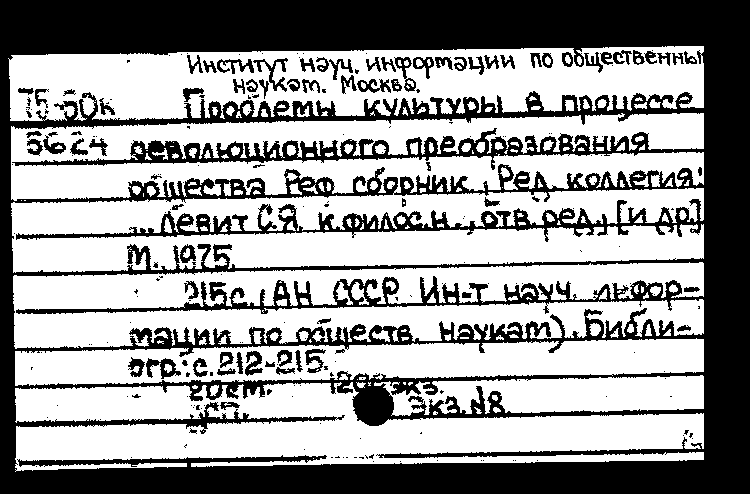 Институт науч. информации по общественны
наукам. Москва.
75-60к Проблемы культуры в процессе
5624 революционного преобразования
общества Реф сборник, Ред. коллегия:
... Левит С.Я. к.филос.н., отв.ред., [и др]
М., 1975.
215с. (АН СССР. Ин-т науч. инфор-
мации по обществ. наукам). Библи-
огр.: с. 212-215.
20см. экз.
Экз. №8.